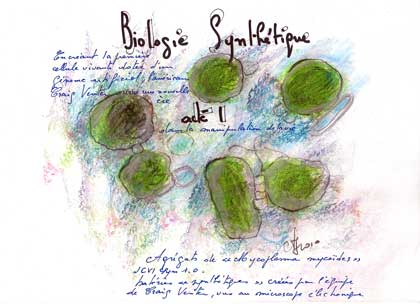 Biologie Synthétique
En créant la première
cellule vivante dotée d'un
génome artificiel, l'américain
Craig Venter ouvre une nouvelle
ère
acte 1
dans la manipulation du vivant
Agrégats de «Mycoplasma mycoides»
JCVI syn 1.0.
bactéries «synthétiques» créées par l'équipe
de Craig Venter, vues au microscope électronique